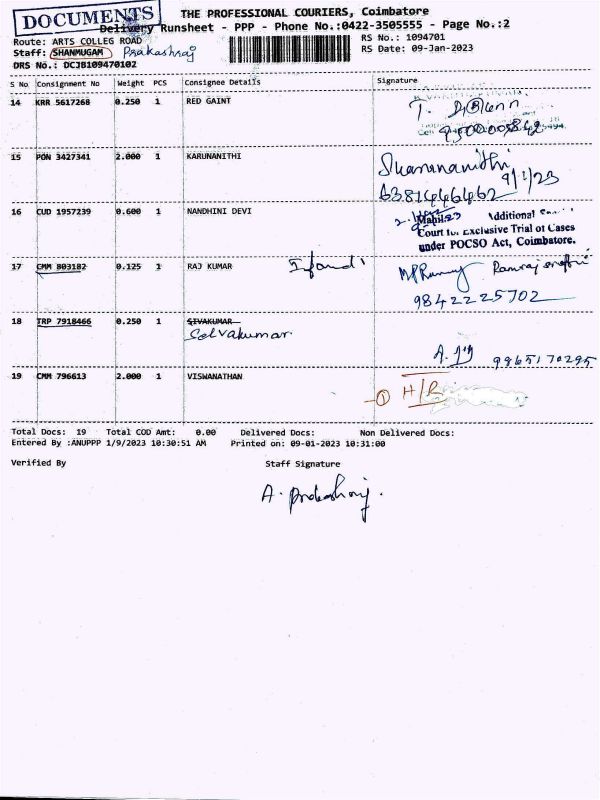 DOCUMENTS
THE PROFESSIONAL COURIERS, Coimbatore
Delivery Runsheet - PPP - Phone No.:0422-3505555 - Page No.:2
Route: ARTS COLLEG ROAD
RS No.: 1094701
Staff: SHANMUGAM Prakashraj
RS Date: 09-Jan-2023
DRS No.: DCJB109470102
S No Consignment No Weight PCS Consignee Details Signature
14 KRR 5617268 0.250 1 RED GAINT
15 PON 3427341 2.000 1 KARUNANITHI
9/1/23
6381446462
16 CUD 1957239 0.600 1 NANDHINI DEVI
Mahila Additional
Court for Exclusive Trial of Cases
under POCSO Act, Coimbatore.
17 CMM 803182 0.125 1 RAJ KUMAR
9842225702
18 TRP 7918466 0.250 1 SIVAKUMAR
Selvakumar
9965170295
19 CMM 796613 2.000 1 VISWANATHAN
1 H/R
Total Docs: 19 Total COD Amt: 0.00 Delivered Docs: Non Delivered Docs:
Entered By :ANUPPP 1/9/2023 10:30:51 AM Printed on: 09-01-2023 10:31:00
Verified By Staff Signature